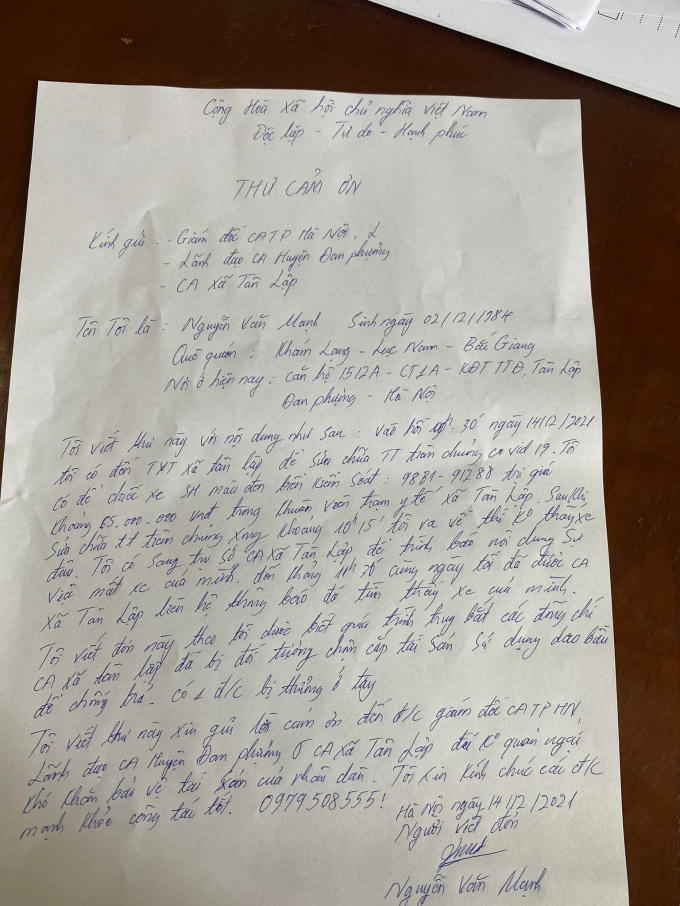 Cộng Hoà Xã hội chủ nghĩa Việt Nam
Độc lập - Tự do - Hạnh phúc
THƯ CẢM ƠN
Kính gửi : - Giám đốc CATP Hà Nội
- Lãnh đạo CA Huyện Đan phượng
- CA xã Tân Lập
Tên Tôi là : Nguyễn Văn Mạnh Sinh ngày 02/12/1984
Quê quán : Khám Lạng - Lục Nam - Bắc Giang
Nơi ở hiện nay : căn hộ 1512A - CT1A - KĐT TTĐ, Tân Lập
Đan phượng - Hà Nội
Tôi viết thư này với nội dung như sau : vào hồi 30' ngày 14/12/2021
tôi có đến TYT xã tân lập để sửa chữa TT tiêm chủng covid 19. Tôi
có để chiếc xe SH màu đen biển kiểm soát : 98B1-91288 trị giá
khoảng 65.000.000 vnđ trong khuôn viên trạm y tế xã Tân Lập. Sau khi
sửa chữa tt tiêm chủng xong khoảng 10h15' tôi ra về thì K° thấy xe
đâu. Tôi có sang trụ sở CA xã Tân Lập để trình báo nội dung sự
việc mất xe của mình. đến khoảng 11h30 cùng ngày tôi đã được CA
xã Tân Lập liên hệ thông báo đã tìm thấy xe của mình.
Tôi viết đơn này theo tôi được biết quá trình truy bắt các đồng chí
CA xã tân lập đã bị đối tượng trộm cắp tài sản sử dụng dao bầu
để chống trả. có 1 đ/c bị thương ở tay
Tôi viết thư này xin gửi lời cám ơn đến đ/c giám đốc CATPHN,
Lãnh đạo CA Huyện Đan phượng CA xã Tân Lập đã K° quản ngại
khó khăn bảo vệ tài sản của nhân dân. Tôi xin kính chúc các đ/c
mạnh khoẻ công tác tốt. 0979508555!
Hà Nội ngày 14/12/2021
Người viết đơn
Nguyễn Văn Mạnh